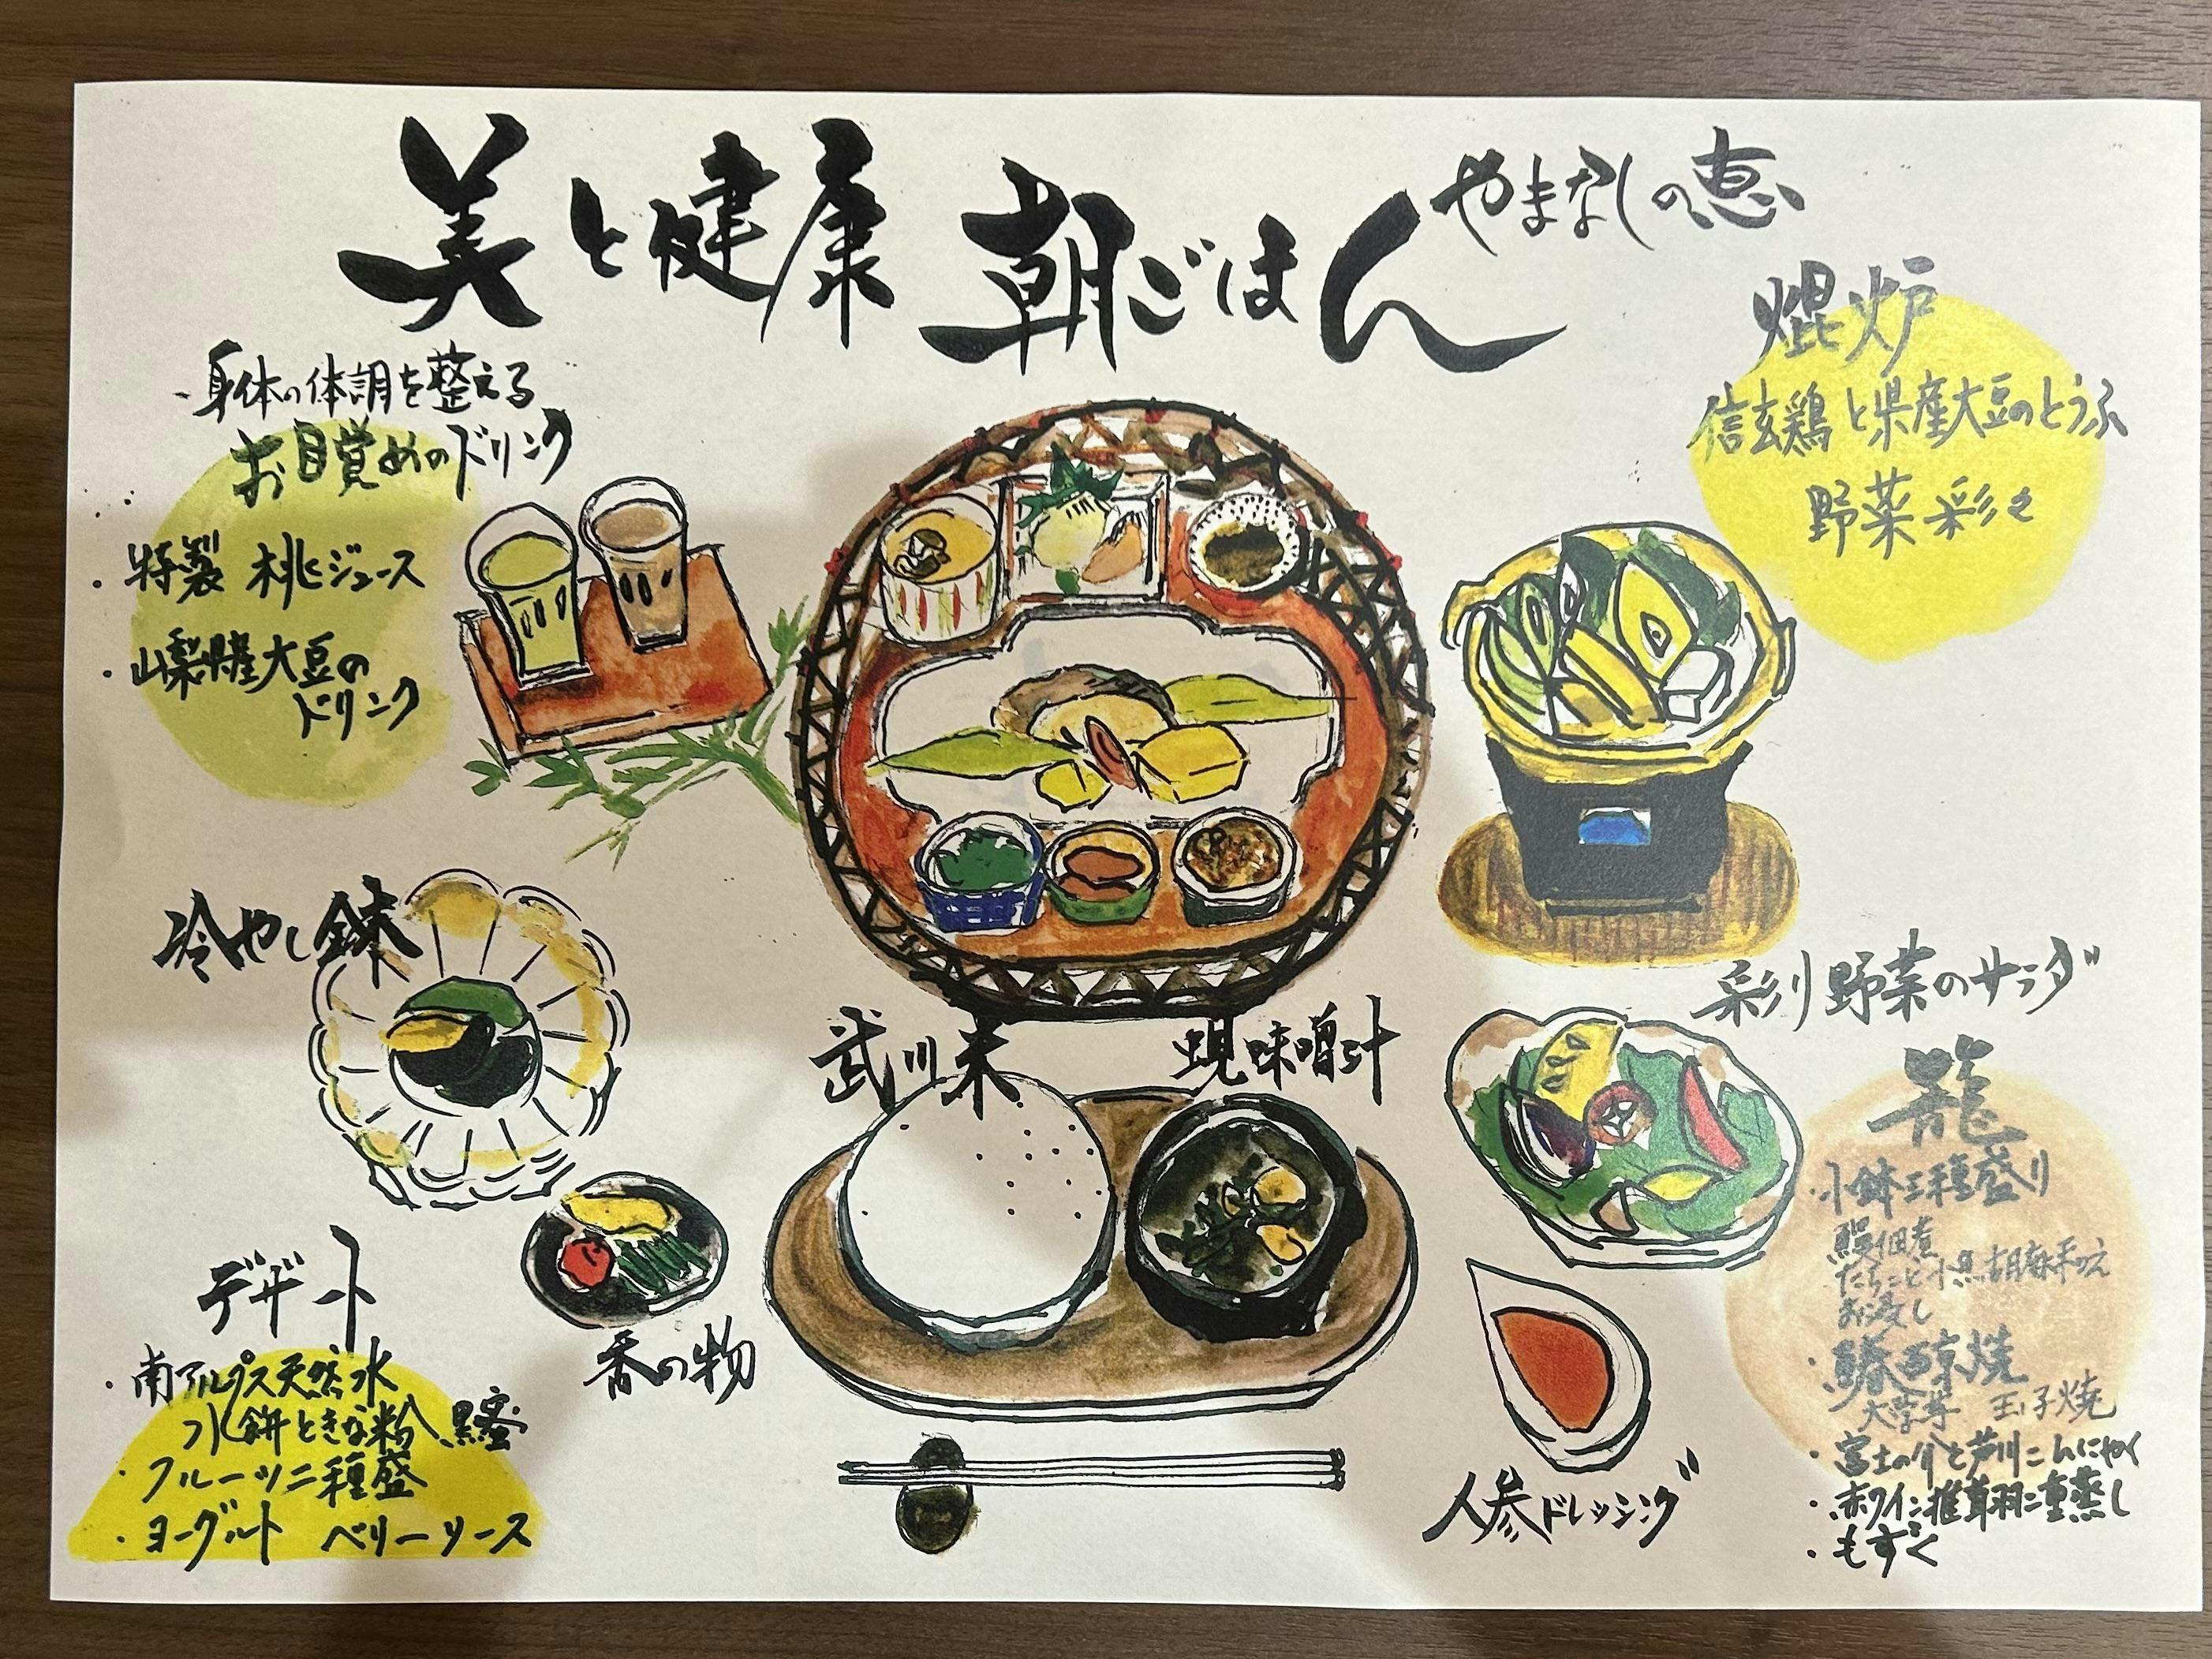 美と健康 朝ごはん
やまなしの恵
・身体の体調を整える
お目覚めのドリンク
・特製 桃ジュース
・山梨県産大豆の
ドリンク
焜炉
信玄鶏と県産大豆のとうふ
野菜彩々
冷やし鉢
武川米
蜆味噌汁
彩り野菜のサラダ
籠
・小鉢三種盛り
佃煮
胡麻和え
お浸し
焼
大学芋 玉子焼
・富士の介と芦川こんにゃく
・赤ワイン椎茸羽二重蒸し
・もずく
デザート
・南アルプス天然水
水餅ときな粉、黒蜜
・フルーツ二種盛
・ヨーグルト ベリーソース
香の物
人参ドレッシング